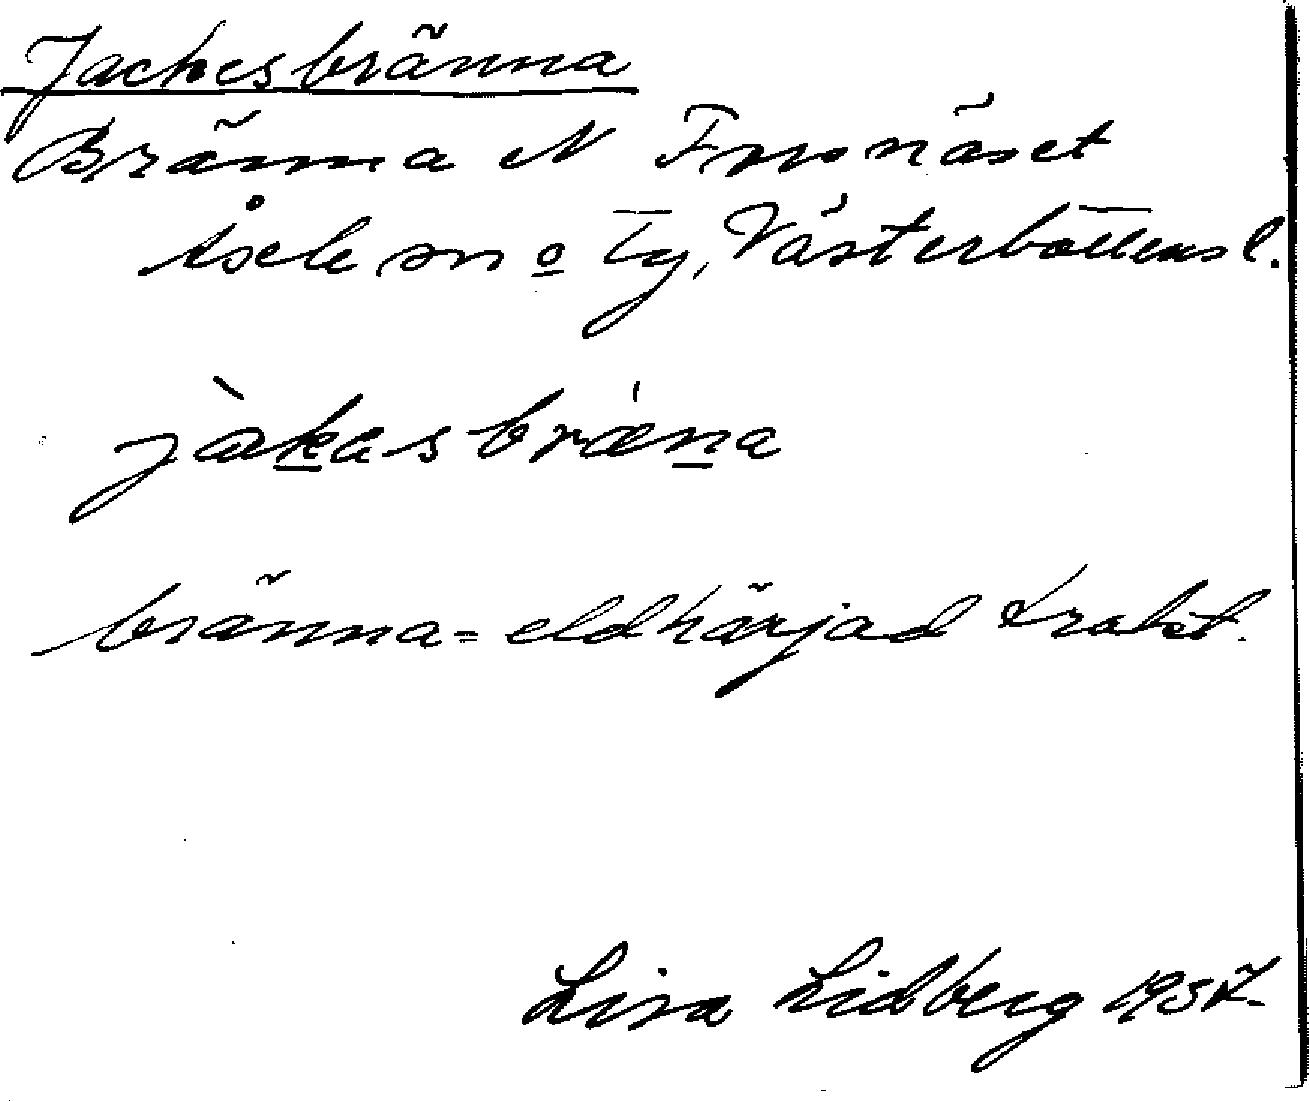 Jackesbränna
Bränna N Tresnäset
Åsele sn o Tg, Västerbottens l.
jàkasbræ̀na
bränna = eldhärjad trakt.
Lisa Lidberg 1957.